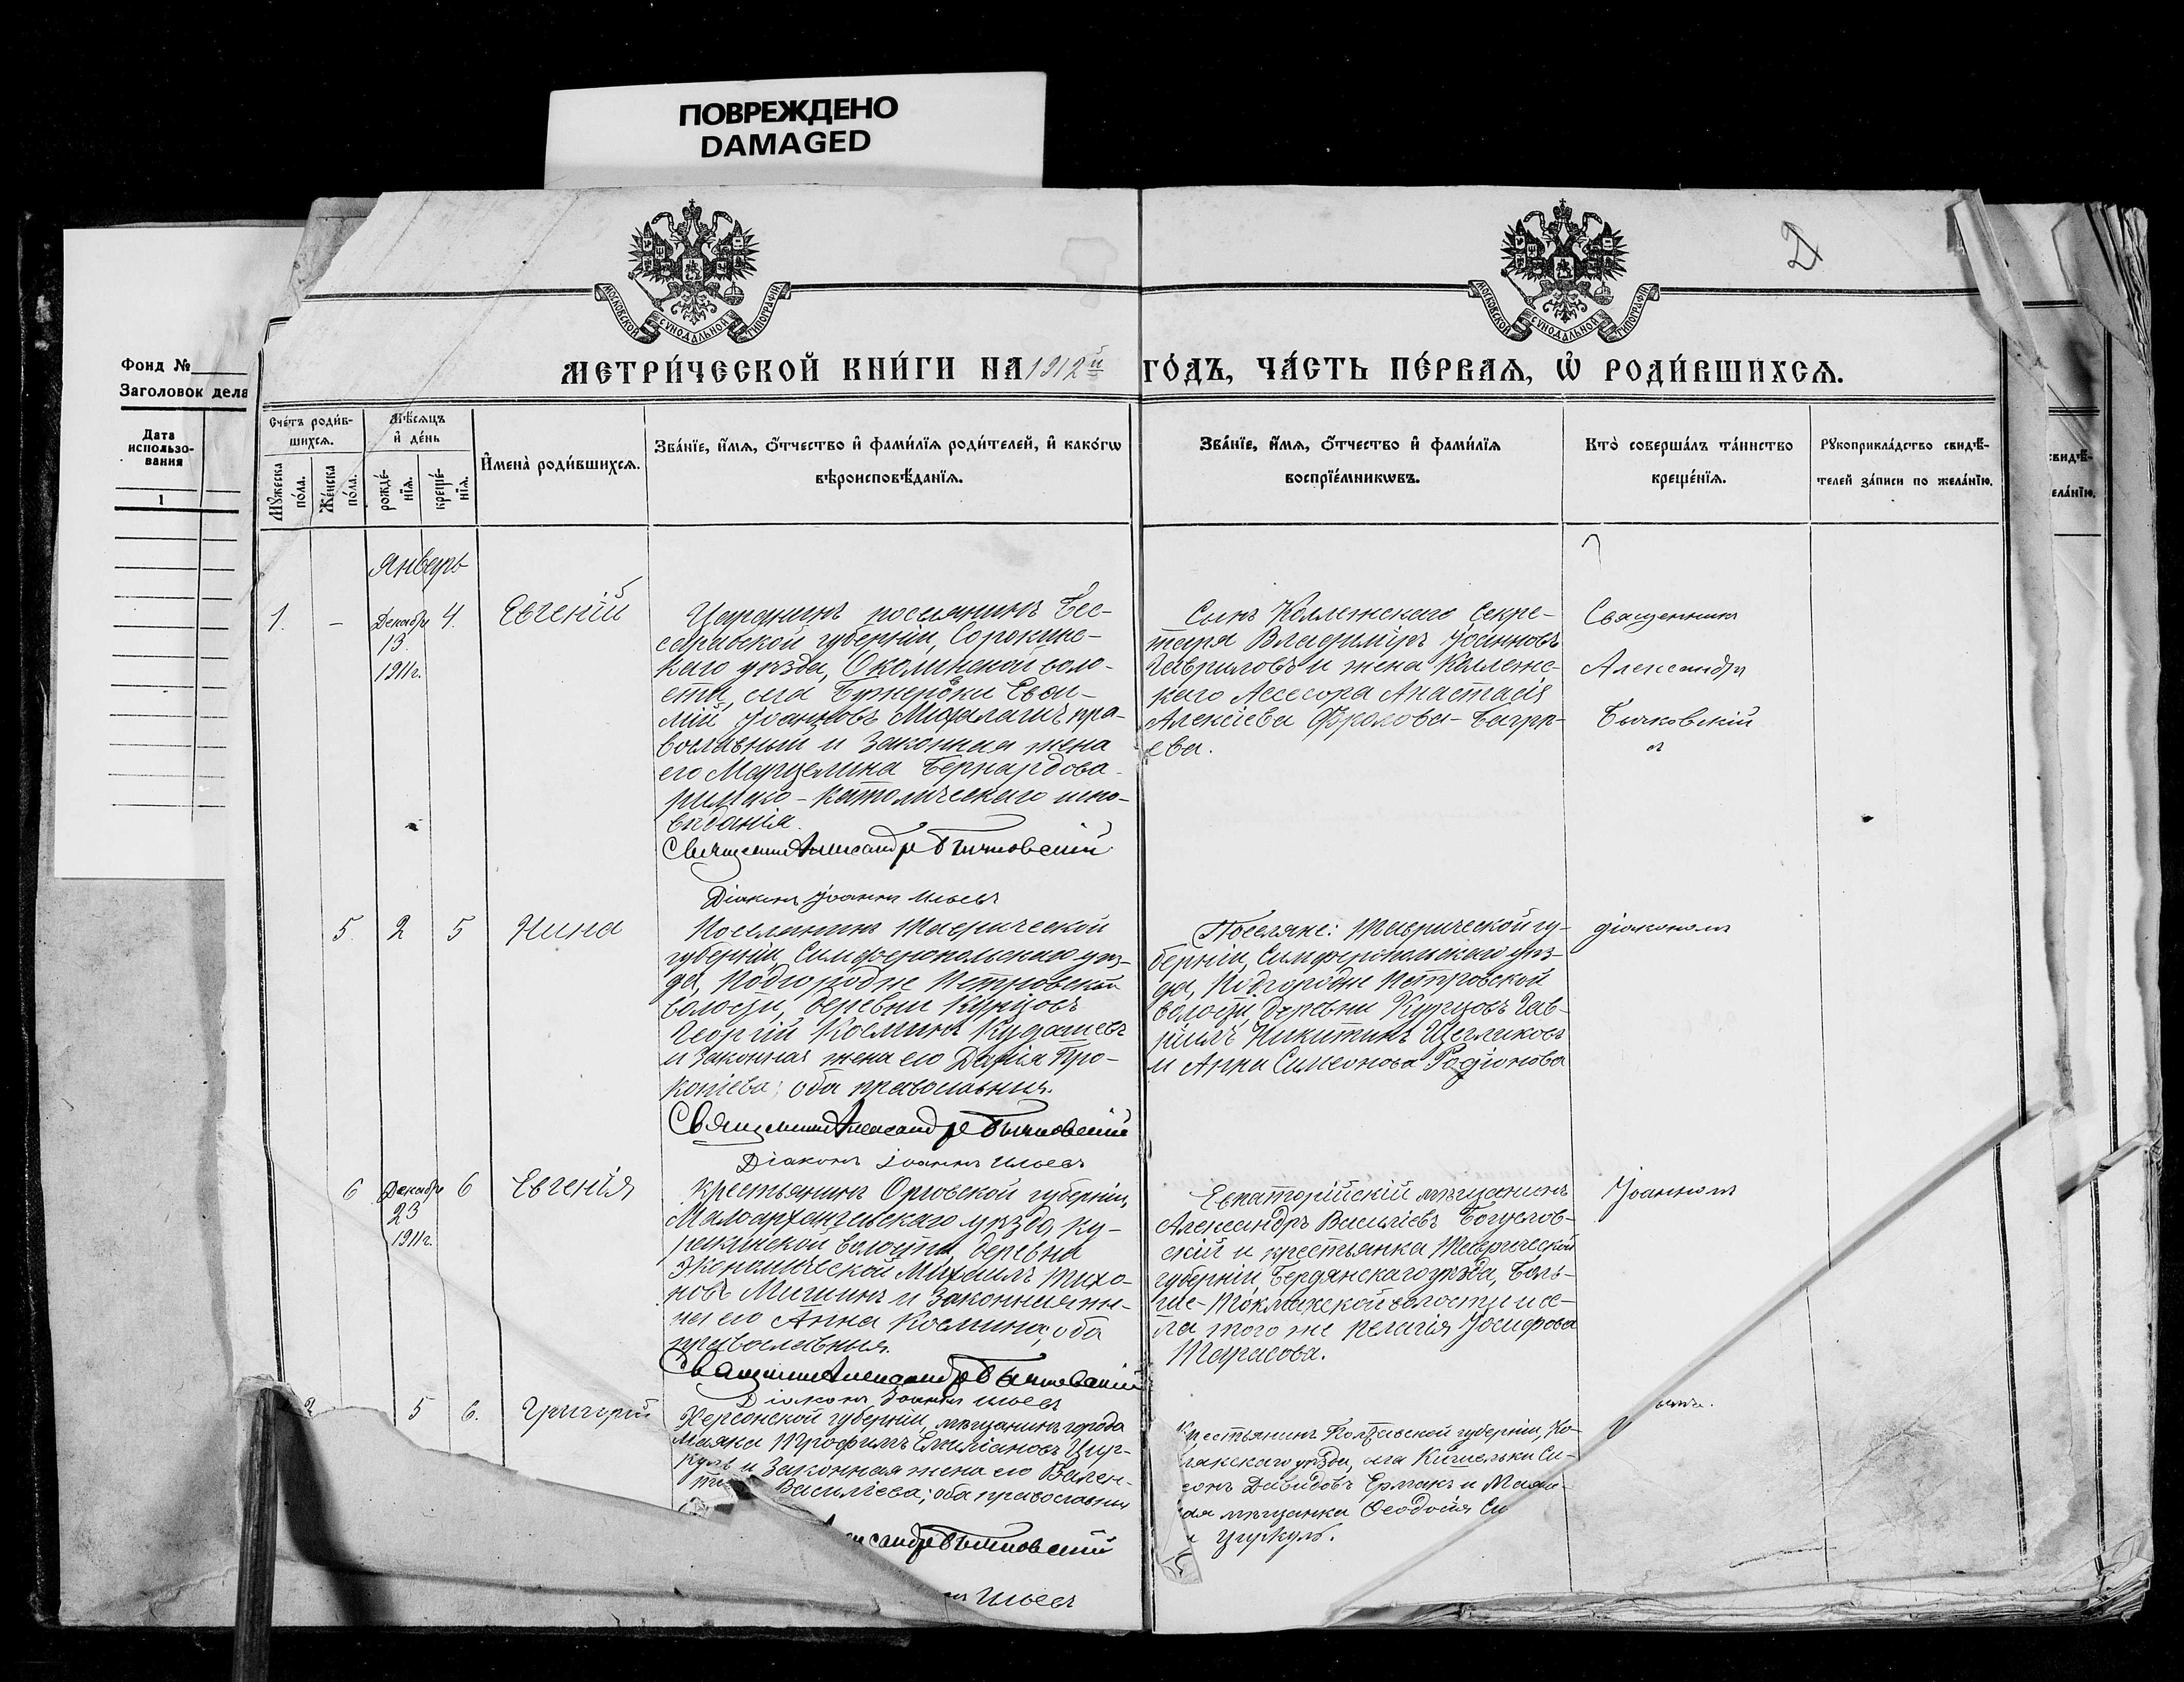 ПОВРЕЖДЕНО
DAMAGED
2
МОСКОВСКОЙ СѴНОДАЛЬНОЙ ТИПОГРАФІИ
МОСКОВСКОЙ СѴНОДАЛЬНОЙ ТИПОГРАФІИ
МЕТРИ́ЧЕСКОЙ КНИ́ГИ НА 1912й ГО́ДЪ, ЧА́СТЬ ПЕ́РВАЯ, Ѡ҆ РОДИ́ВШИХСЯ.
Фонд №
Заголовок дела
Дата
использо-
вания
1
Сче́тъ роди́в-
шихся.
Мꙋ́жеска
по́ла.
Же́нска
по́ла.
Мѣ́сяцъ
и҆ де́нь
рожде́-
нїя.
креще́-
нїя.
И҆мена̀ роди́вшихся.
Зва́нїе, и҆́мя, ѻ҆́тчество и҆ фами́лїя роди́телей, и҆ како́гѡ
вѣроисповѣ́данїя.
Зва́нїе, и҆́мя, ѻ҆́тчество и҆ фами́лїя
воспрїе́мникѡвъ.
Кто̀ соверша́лъ та́инство
креще́нїя.
Рꙋкоприкла́дство свидѣ́-
телей за́писи по жела́нїю.
свидѣ́-
ела́нїю.
Январь
1. - Декабр 4. Евгеній
13.
1911г.
Царанинъ поселянинъ Бес-
сарабской губерніи, Сорокинс-
каго уѣзда, Околинской воло-
сти, села Евфи-
мій Іоанновъ пра-
вославный и законная жена
его Марцелина Бернардова
римско-католическаго испо-
вѣданія.
Священникъ Александръ Бычковскій
Діаконъ Іоаннъ Ильевъ
Сынъ Коллежскаго Секре-
таря Владиміръ Іоанновъ
Гавриловъ и жена Коллежс-
каго Асессора Анастасія
Алексіева Фролова-Багрѣ-
ева.
Священникъ
Александръ
Бычковскій
съ
5. 2 5 Нина
Поселянинъ Таврической
губерніи, Симферопольскаго уѣз-
да, Подгородне Петровской
волости, деревни Курцовъ
Георгій Косминъ Кудашевъ
и законная жена его Дарія Про-
копіева; оба православные.
Священникъ Александръ Бычковскій
Діаконъ Іоаннъ Ильевъ
Поселяне: Таврической гу-
берніи, Симферопольскаго уѣз-
да, Подгородне Петровской
волости, деревни Курцовъ Гав-
ріилъ Никитинъ Щегликовъ
и Анна Симеонова Родіонова
діакономъ
6 Декабр 6 Евгенія
23
1911г.
Крестьянинъ Орловской губерніи,
Малоархангельскаго уѣзда, Ку-
ракинской волости, деревни
Экономической Михаилъ Тихо-
новъ Мишинъ и законная же-
на его Анна Космина; оба
православные.
Священникъ Александръ Бычковскій
Діаконъ Іоаннъ Ильевъ
Евпаторійскій мѣщанинъ
Александръ Василіевъ Богуслов-
скій и крестьянка Таврической
губерніи Бердянскаго уѣзда, Боль-
ше-Токмакской волости и се-
ла того же Пелагія Іосифова
Тарасова.
Іоанномъ
2 5 6. Григорій
Херсонской губерніи, мѣщанинъ города
Маяки Трофимъ Емиліановъ Цир-
куль и законная жена его Вален-
Василіева; оба православные
ександръ Бычковскій
Ильевъ
Крестьянинъ Полтавской губерніи, Ко-
лякскаго уѣзда, села Кишельки Си-
сонъ Давидовъ Ермакъ и Маяц-
кая мѣщанка Ѳеодосія
Циркуль.